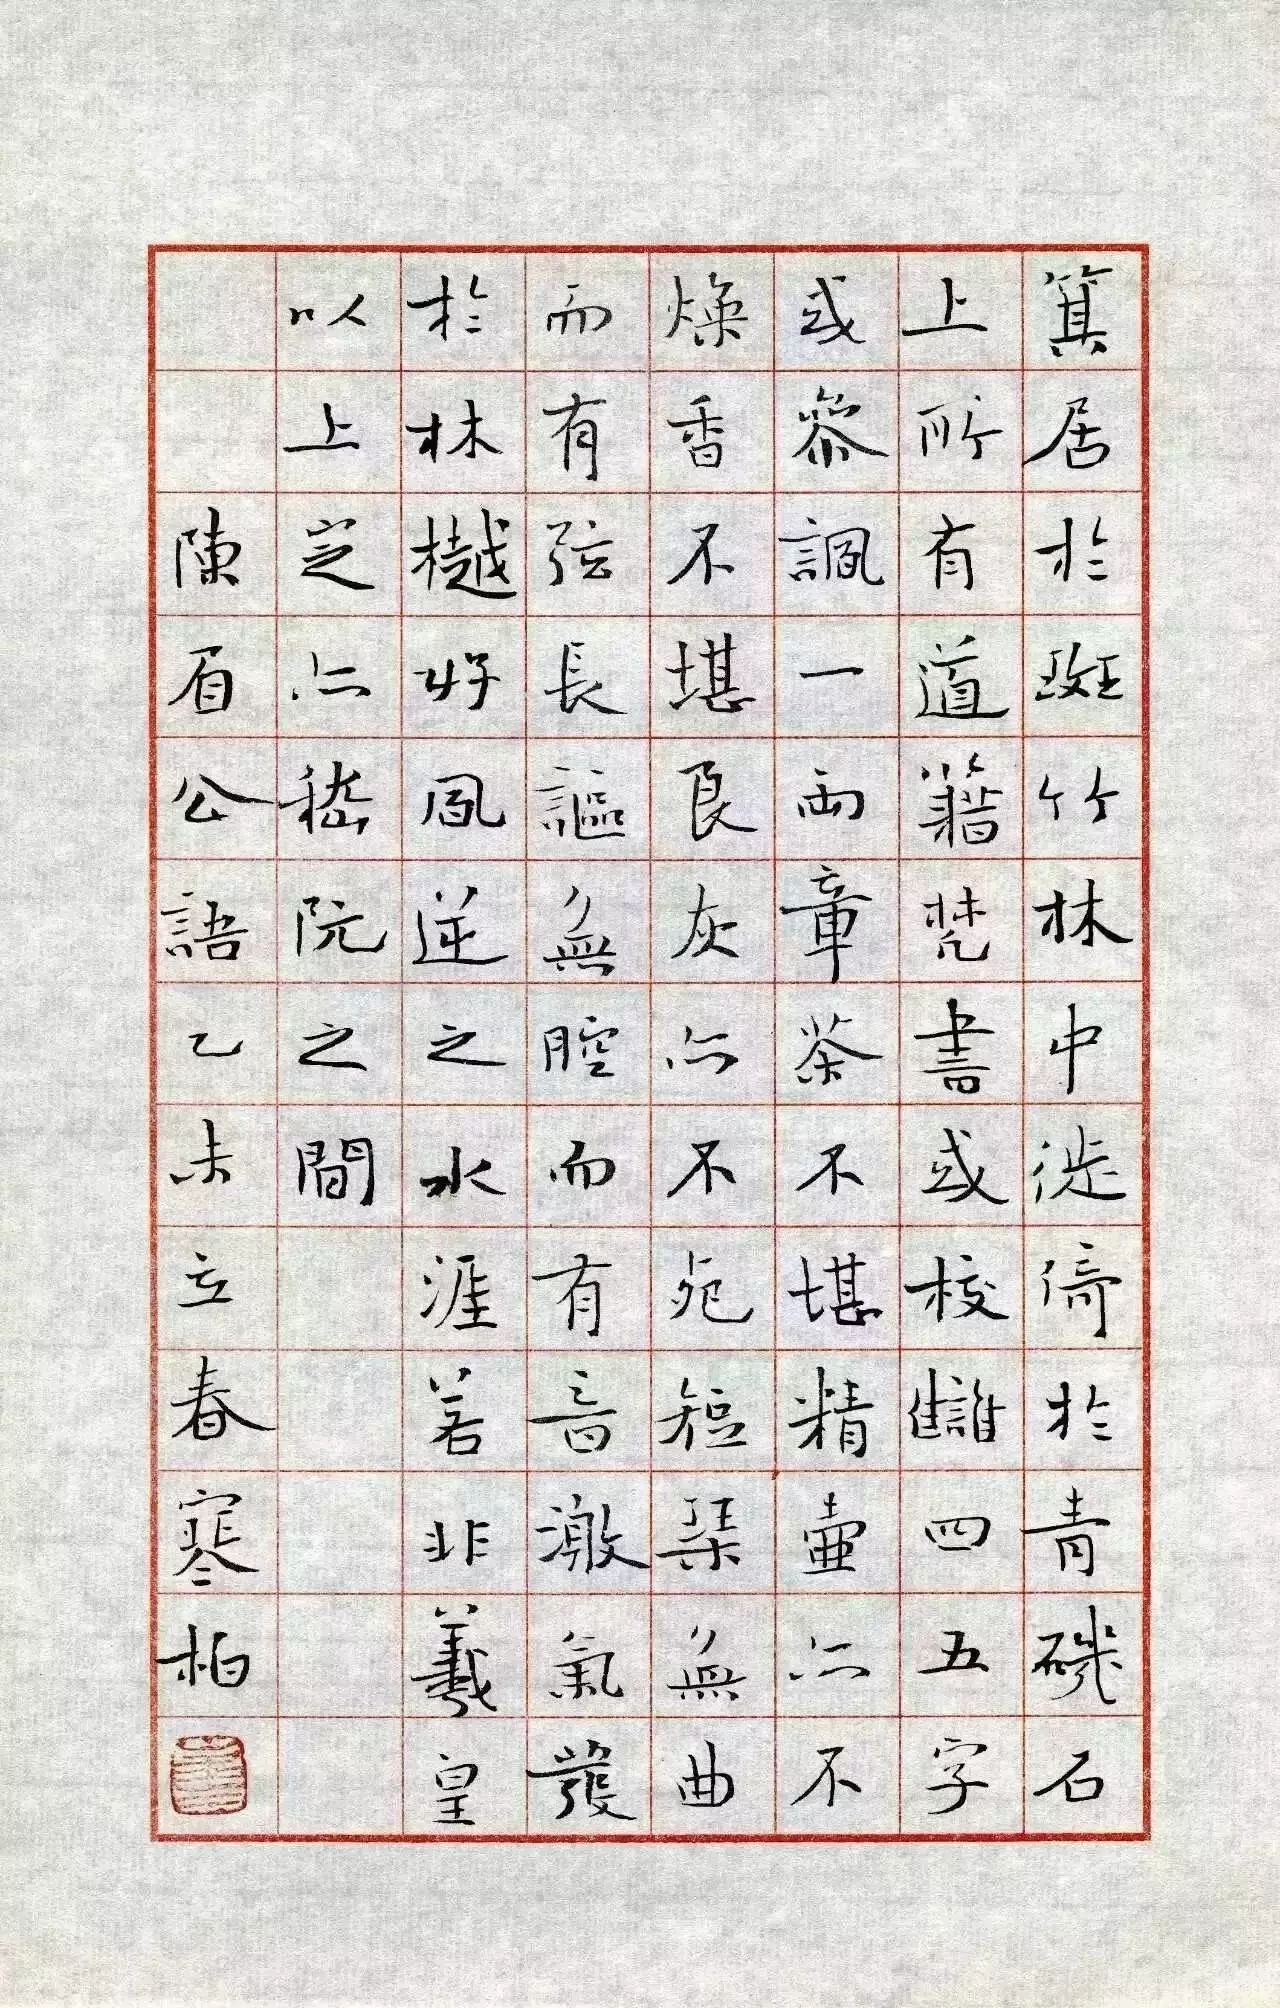 箕居於斑竹林中徙倚於青磯石
上所有道籍梵書或校讎四五字
或參諷一兩章茶不堪精壺亦不
燥香不堪良灰亦不死短琹無曲
而有弦長謳無腔而有音激氣發
於林樾好風逆之水涯若非羲皇
以上定亦嵇阮之間
陳眉公語乙未立春寒柏